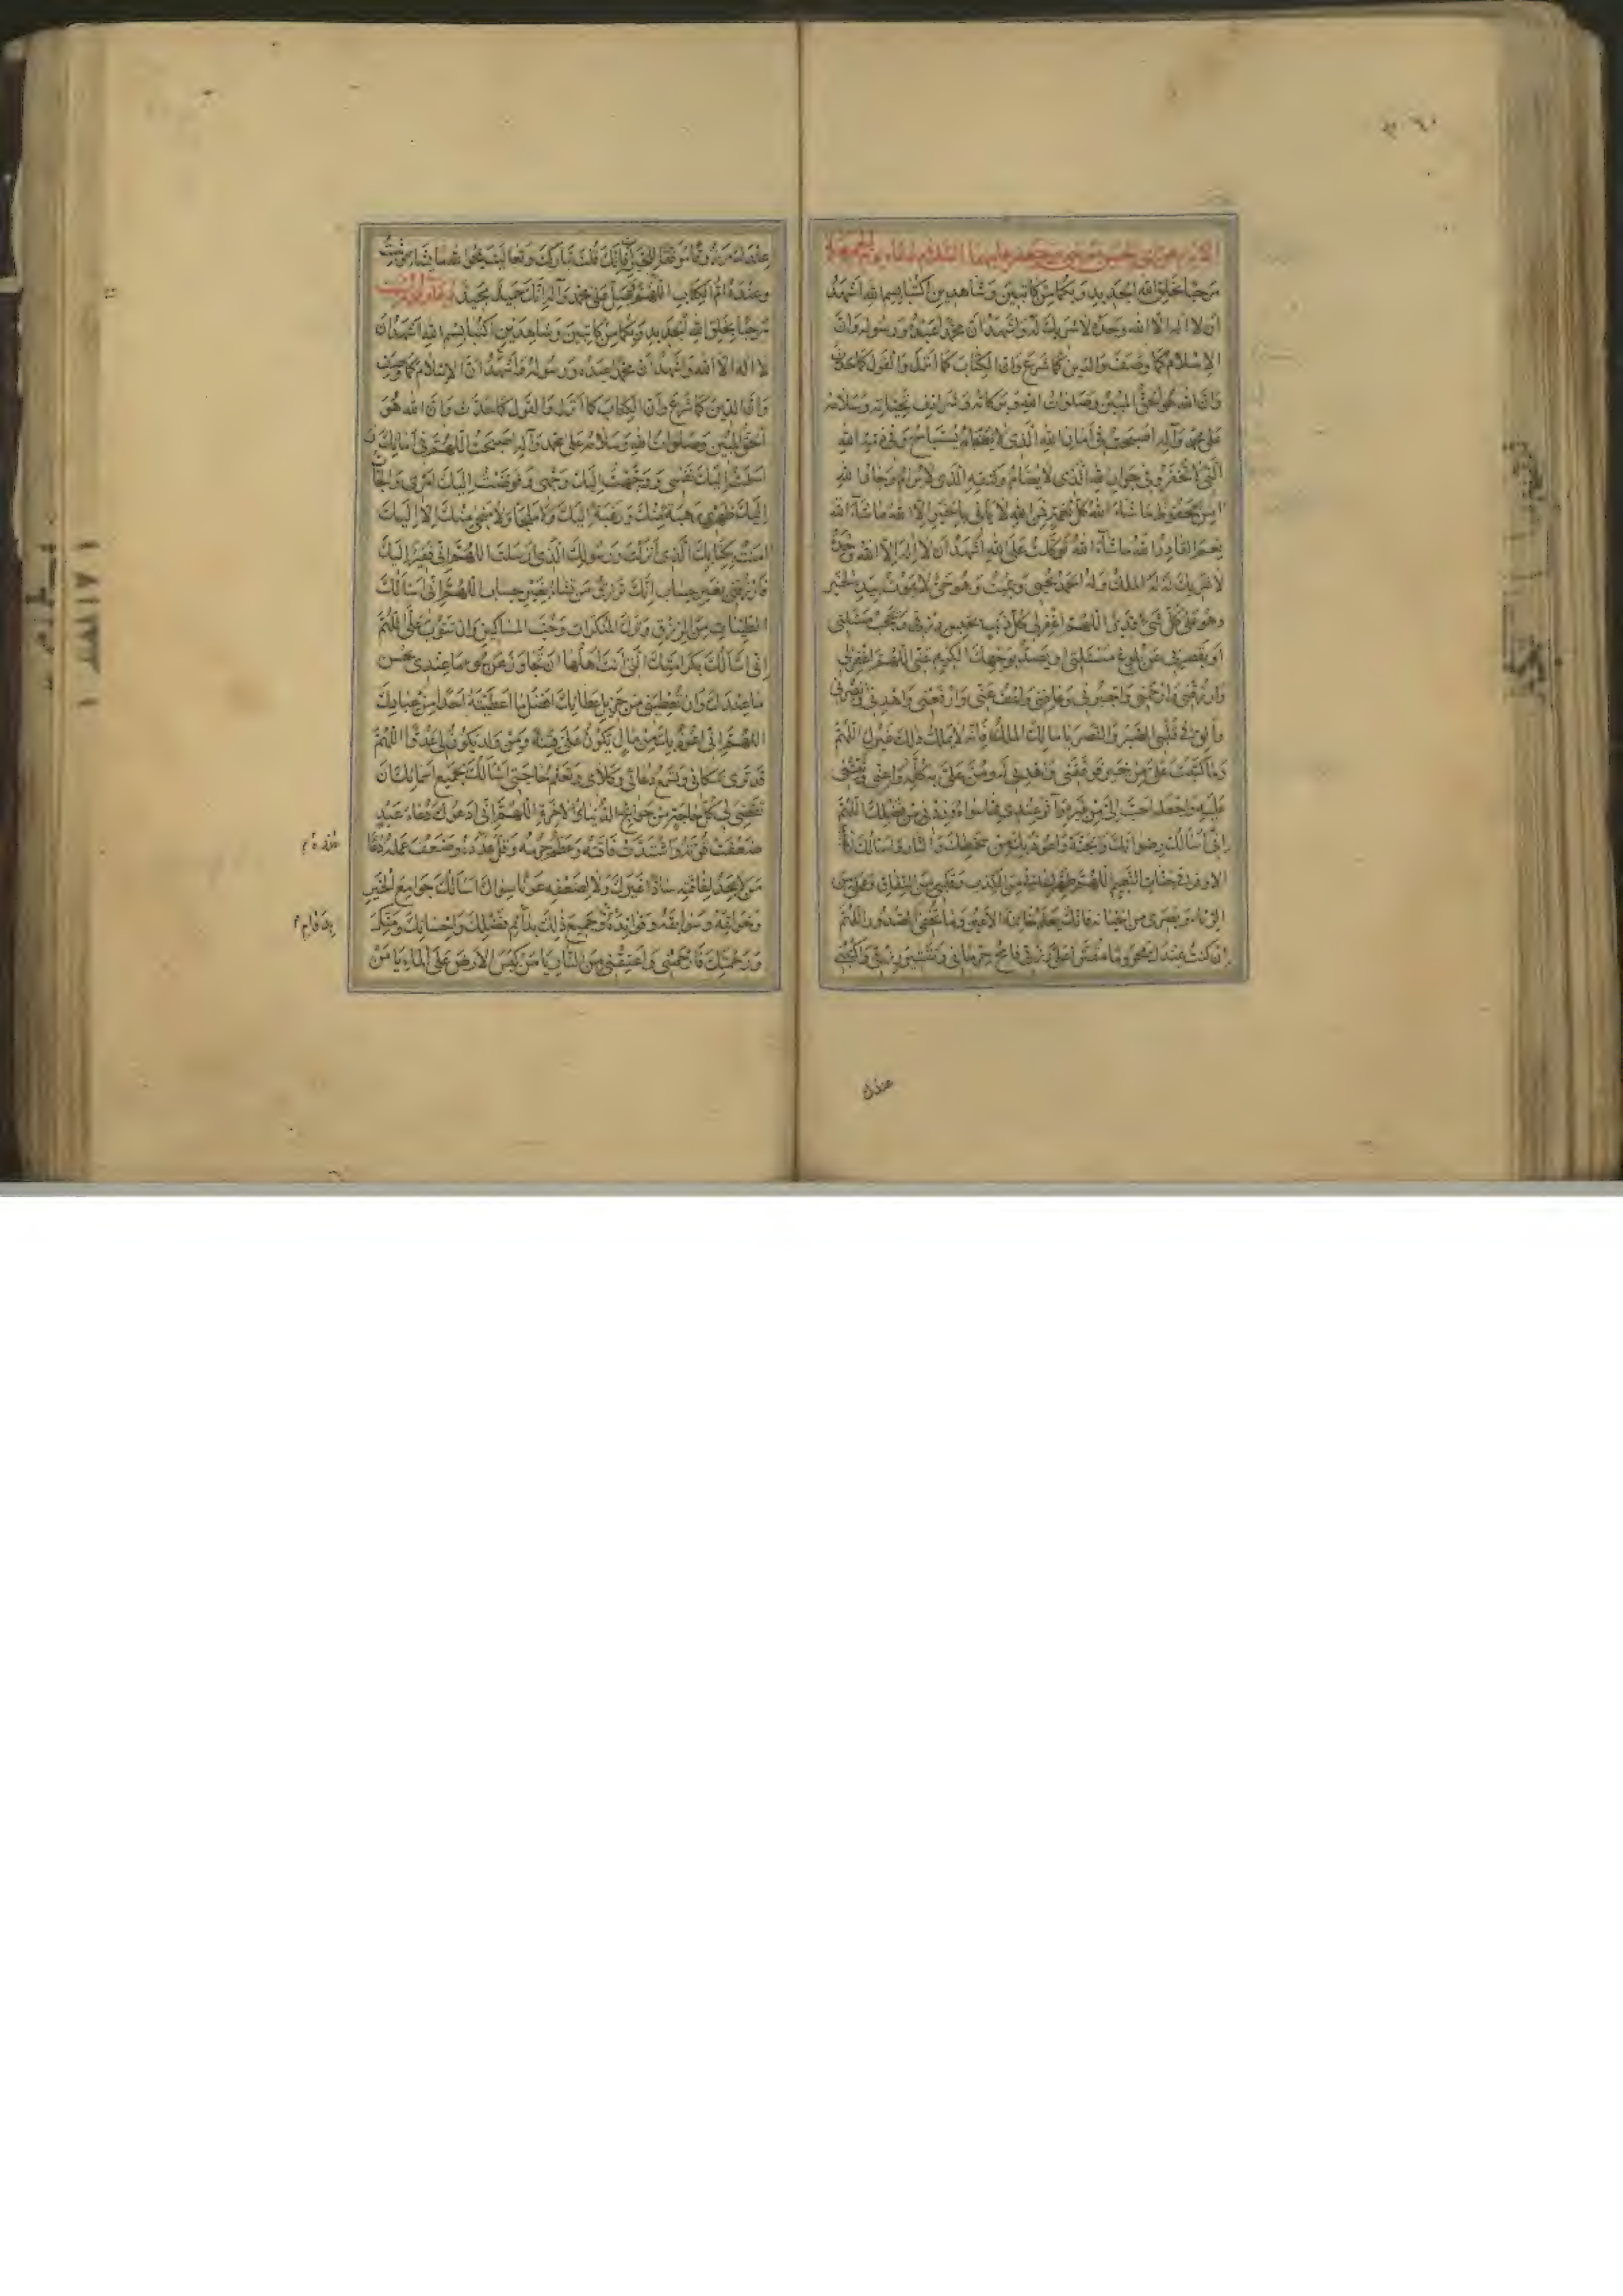 الايام عن ابي الحسن موسى بن جعفر عليهما السلام دعاء يوم الجمعة
مرحبا بخلق الله الجديد وبكما من كاتبين وشاهدين اكتبا بسم الله اشهد
ان لا اله الا الله وحده لا شريك له واشهد ان محمدا عبده ورسوله وان
الاسلام كما وصف والدين كما شرع وان الكتاب كما انزل والقول كما حدث
وان الله هو الحق المبين وصلوات الله وبركاته وشرايف تحياته وسلامه
على محمد وآله اصبحت في امان الله الذي لا يستباح وفي ذمة الله
التي لا تخفر وفي جوار الله الذي لا يضام وكنفه الذي لا يرام وجار الله
امن محفوظ ما شاء الله كل نعمة فمن الله ما شاء الله لا ياتي بالخير الا الله ما شاء الله
نعم القادر الله ما شاء الله توكلت على الله اشهد ان لا اله الا الله وحده
لا شريك له له الملك وله الحمد يحيي ويميت وهو حي لا يموت بيده الخير
وهو على كل شيء قدير اللهم اغفر لي كل ذنب يحبس رزقي ويحجب مسئلتي
او يقصر بي عن بلوغ مسئلتي او يصد بوجهك الكريم عني اللهم اغفر لي
وارزقني وارحمني واجبرني وعافني واعف عني وارفعني واهدني وانصرني
والق في قلبي الصبر والنصر يا مالك الملك فانه لا يملك ذلك غيرك اللهم
وما كتبت علي من خير فوفقني واهدني له ومن علي به كله واعني وثبتني
عليه واجعله احب الي من غيره وآثر عندي مما سواه وزدني من فضلك اللهم
اني اسالك رضوانك والجنة واعوذ بك من سخطك والنار واسالك النصيب
الاوفر في جنات النعيم اللهم طهر لساني من الكذب وقلبي من النفاق وعملي من
الرياء وبصري من الخيانة فانك تعلم خائنة الاعين وما تخفي الصدور اللهم
ان كنت عندك محروما مقترا علي رزقي فامح حرماني وتقتير رزقي واكتبني
عندك
عندك مرزوقا موفقا للخيرات فانك قلت تباركت وتعاليت يمحو الله ما يشاء ويثبت
وعنده ام الكتاب اللهم فصل على محمد وآله انك حميد مجيد دعاء يوم السبت
مرحبا بخلق الله الجديد وبكما من كاتبين وشاهدين اكتبا بسم الله اشهد ان
لا اله الا الله واشهد ان محمدا عبده ورسوله واشهد ان الاسلام كما وصف
وان الدين كما شرع وان الكتاب كما انزل والقول كما حدث وان الله هو
الحق المبين وصلوات الله وسلامه على محمد وآله اصبحت اللهم في امانك
اسلمت اليك نفسي ووجهت اليك وجهي وفوضت اليك امري والجأت
اليك ظهري رهبة منك ورغبة اليك ولا ملجا ولا منجى منك الا اليك
امنت بكتابك الذي انزلت ورسولك الذي ارسلت اللهم اني فقير اليك
فارزقني بغير حساب انك ترزق من تشاء بغير حساب اللهم اني اسالك
الطيبات من الرزق وترك المنكرات وحب المساكين وان تتوب علي اللهم
اني اسالك بكرامتك التي انت اهلها ان تجاوز عن سوء ما عندي بحسن
ما عندك وان تعطيني من جزيل عطائك افضل ما اعطيته احدا من عبادك
اللهم اني اعوذ بك من مال يكون علي فتنة ومن ولد يكون لي عدوا اللهم
قد ترى مكاني وتسمع دعائي وكلامي وتعلم حاجتي اسالك بجميع اسمائك ان
تقضي لي كل حاجة من حوائج الدنيا والاخرة اللهم اني ادعوك دعاء عبد
ضعفت قوته واشتدت فاقته وعظم جرمه وقل عدده وضعف عمله دعاء
من لا يجد لفاقته سادا غيرك ولا لضعفه عونا سواك اسالك جوامع الخير
وخواتمه وسوابقه وفوائده وجميع ذلك بدائم فضلك واحسانك ومنك
ورحمتك فارحمني واعتقني من النار يا من كبس الارض على الماء يا من